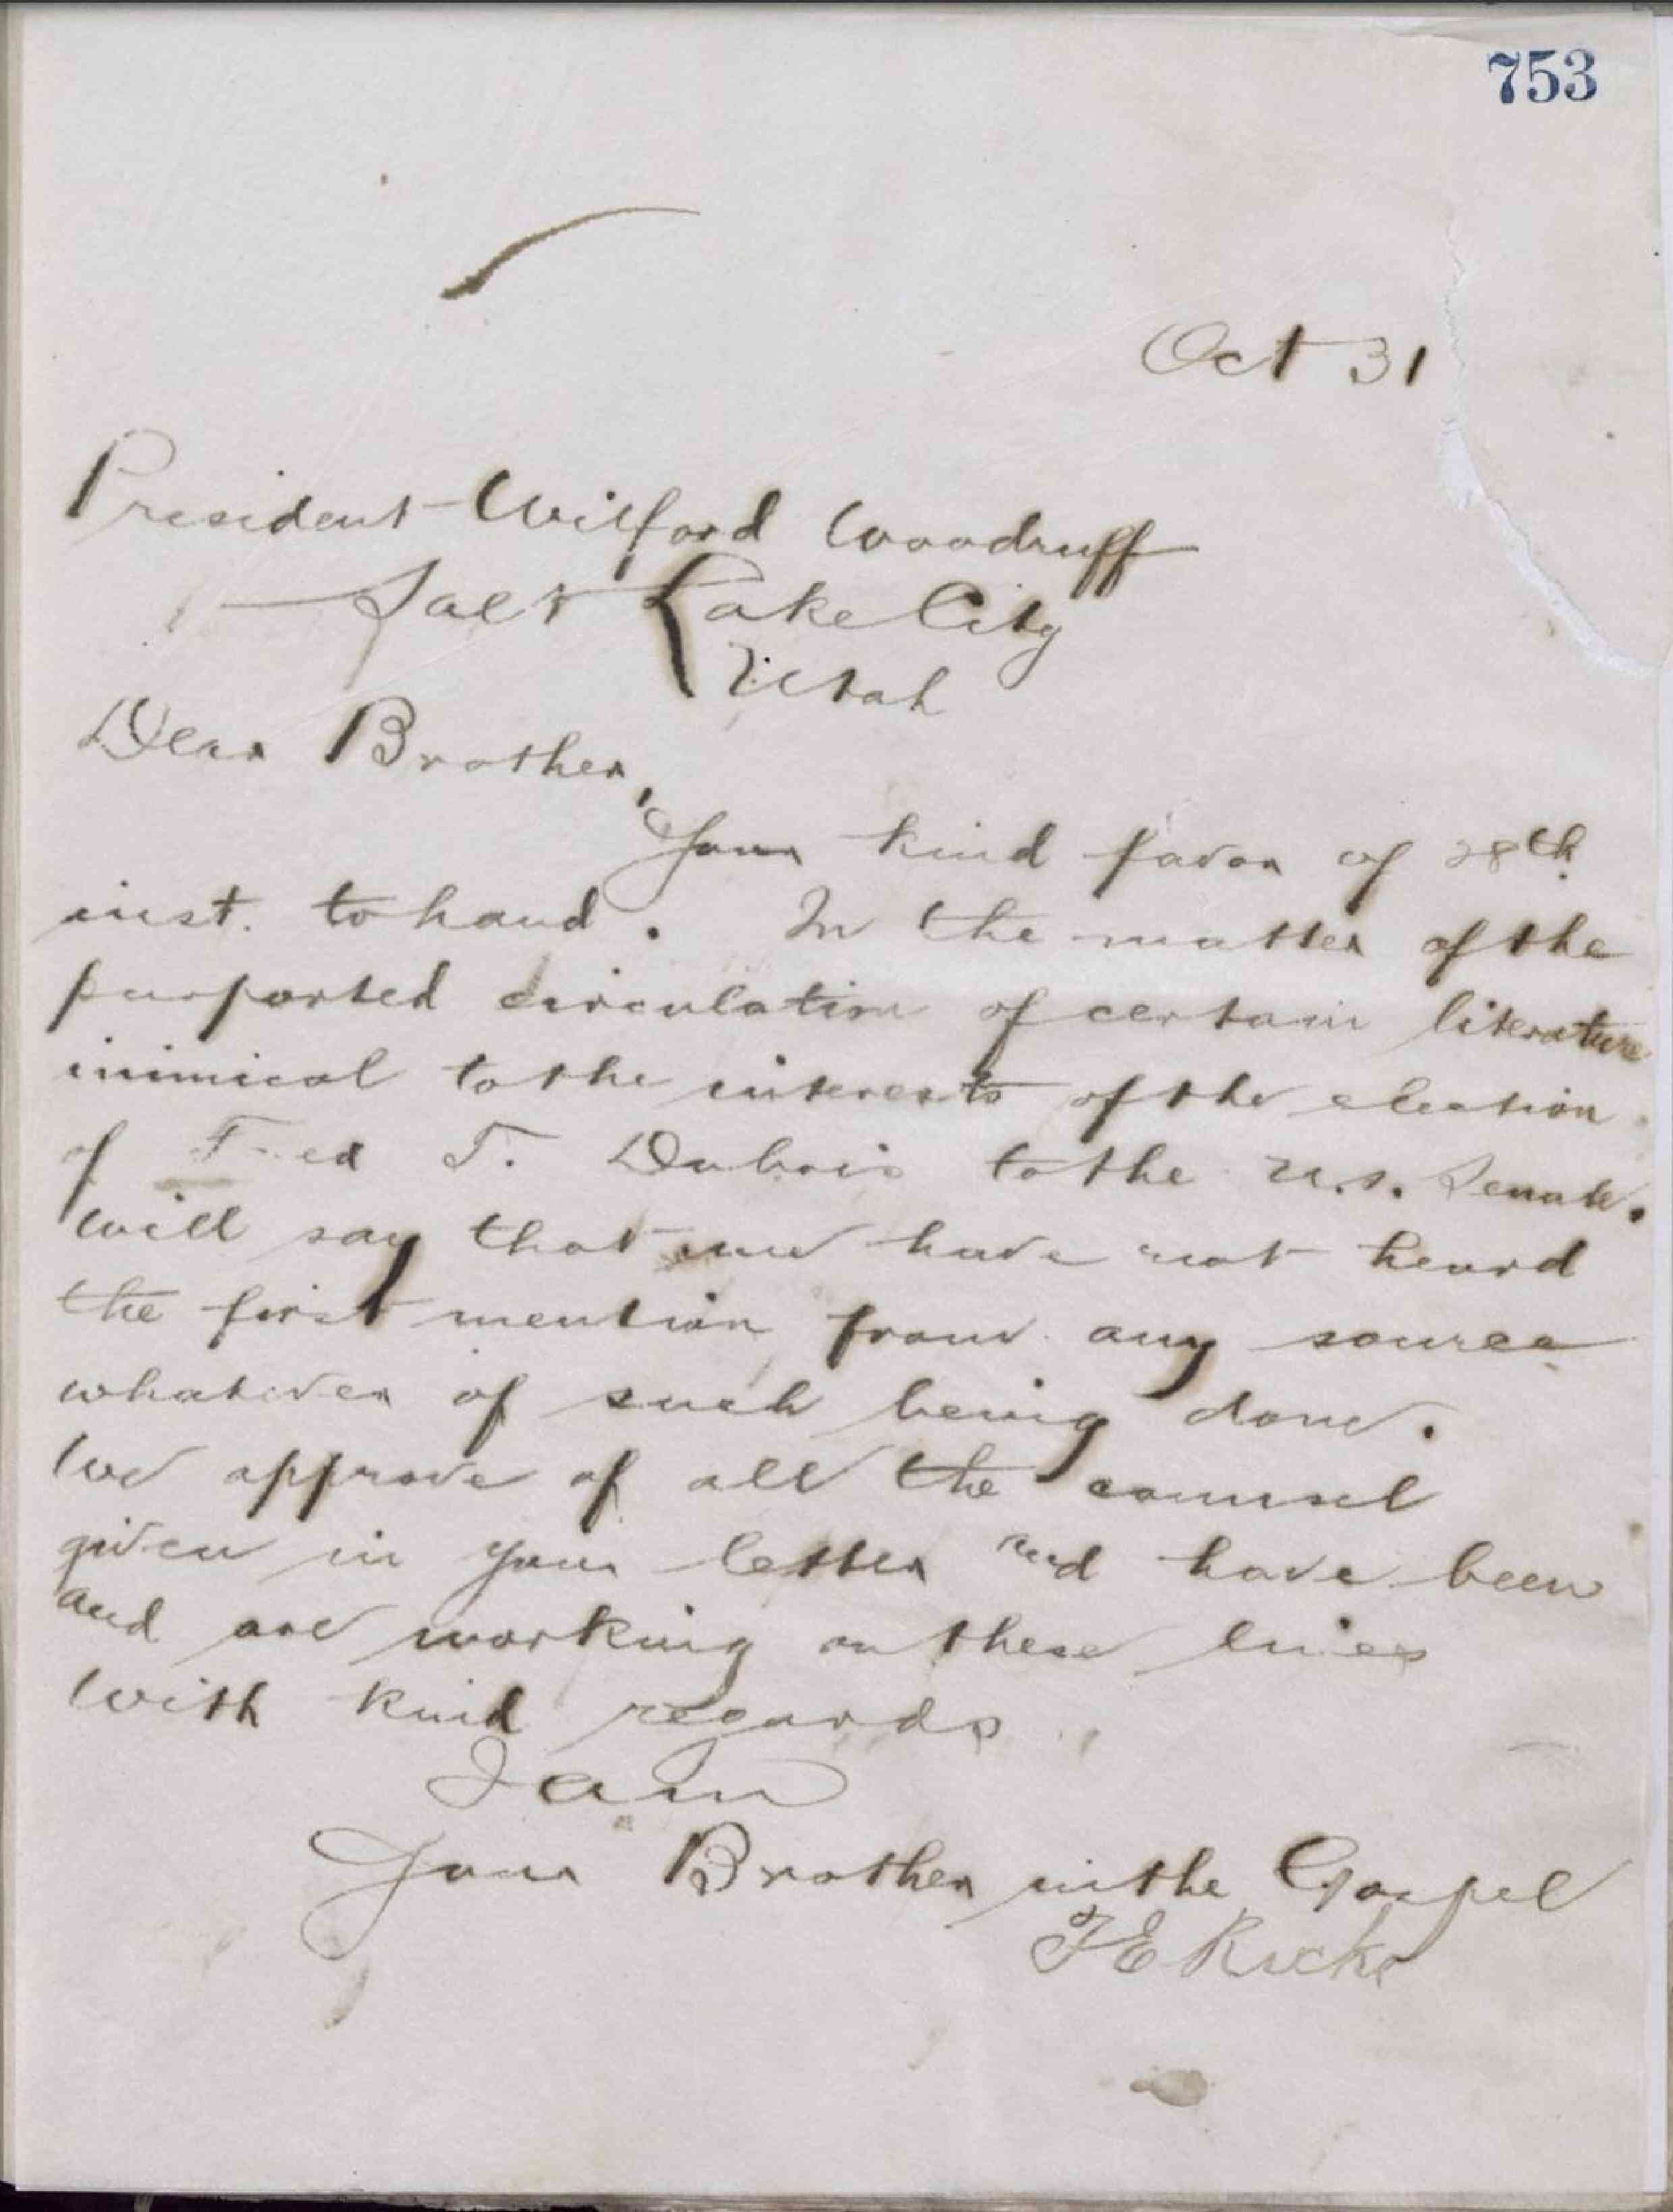 753
Oct 31
President Wilford Woodruff
Salt Lake City
Utah
Dear Brother,
Your kind favor of 28th
inst. to hand. In the matter of the
purported circulation of certain literature
inimical to the interests of the election
of Fred T. Dubois to the U.S. Senate.
will say that we have not heard
the first mention from any source
whatever of such being done.
We approve of all the counsel
given in your letter and have been
and are working on these lines
With kind regards
I am
Your Brother in the Gospel
T E Ricks